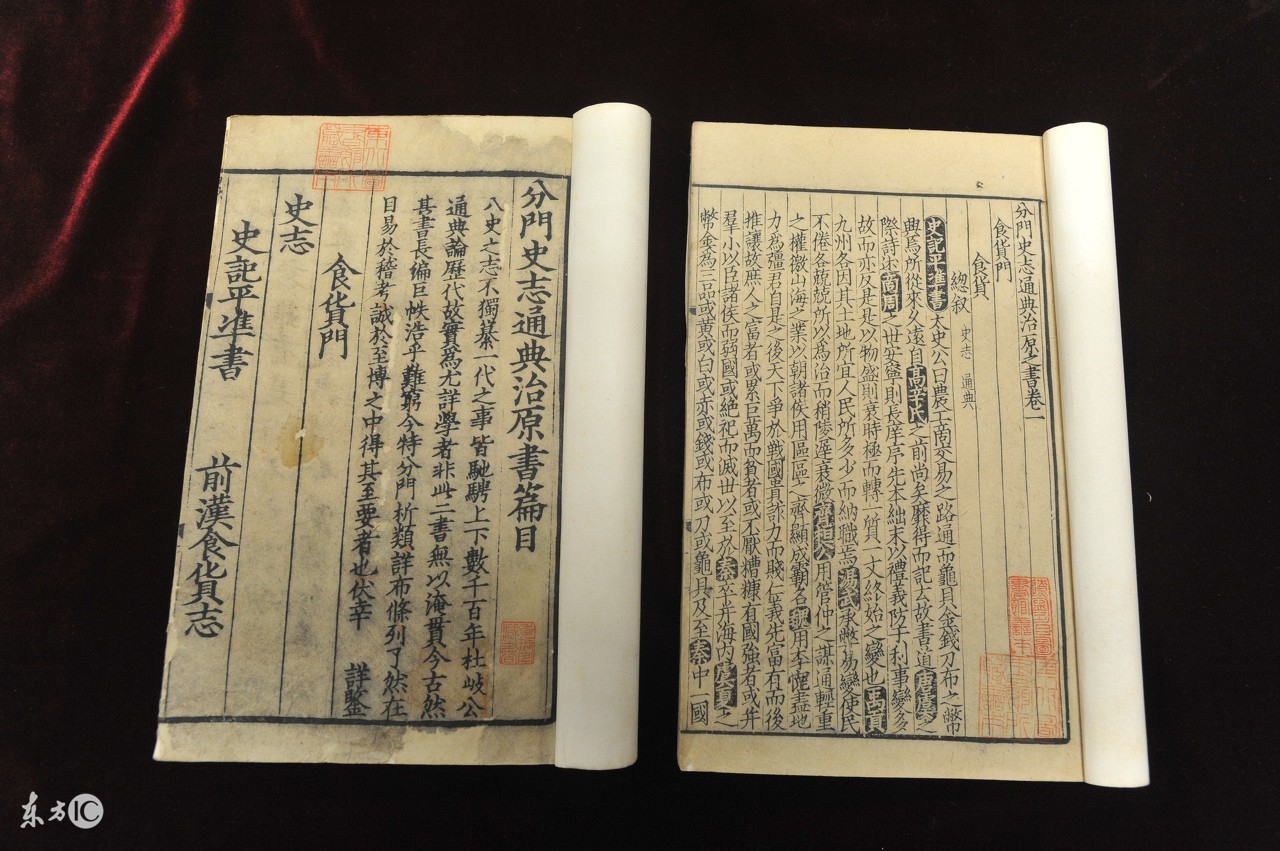 分門史志通典治原書篇目
八史之志不獨纂一代之事皆馳騁上下數千百年杜岐公
通典論歷代故實爲尤詳學者非此二書無以淹貫今古然
其書長編巨帙浩乎難窮今特分門析類詳布條列了然在
目易於稽考誠於至博之中得其至要者也伏幸 詳鑒
食貨門
史志
史記平準書 前漢食貨志
分門史志通典治原之書卷一
食貨門
食貨
總叙 史志 通典
史記平準書太史公曰農工商交易之路通而龜貝金錢刀布之幣
興焉所從來久遠自高辛氏之前尚矣靡得而記故書道唐虞之
際詩述商周之世安寧則長庠序先本絀末以禮義防于利事變多
故而亦反是是以物盛則衰時極而轉一質一文終始之變也禹貢
九州各因其土地所宜人民所多少而納職焉湯武承弊易變使民
不倦各兢兢所以爲治而稍陵遲衰微齊桓公用管仲之謀通輕重
之權徼山海之業以朝諸侯用區區之齊顯成霸名魏用李悝盡地
力爲彊君自是之後天下爭於戰國貴詐力而賤仁義先富有而後
推讓故庶人之富者或累巨萬而貧者或不厭糟糠有國強者或并
羣小以臣諸侯而弱國或絕祀而滅世以至於秦卒并海内虞夏之
幣金爲三品或黄或白或赤或錢或布或刀或龜貝及至秦中一國
东方IC